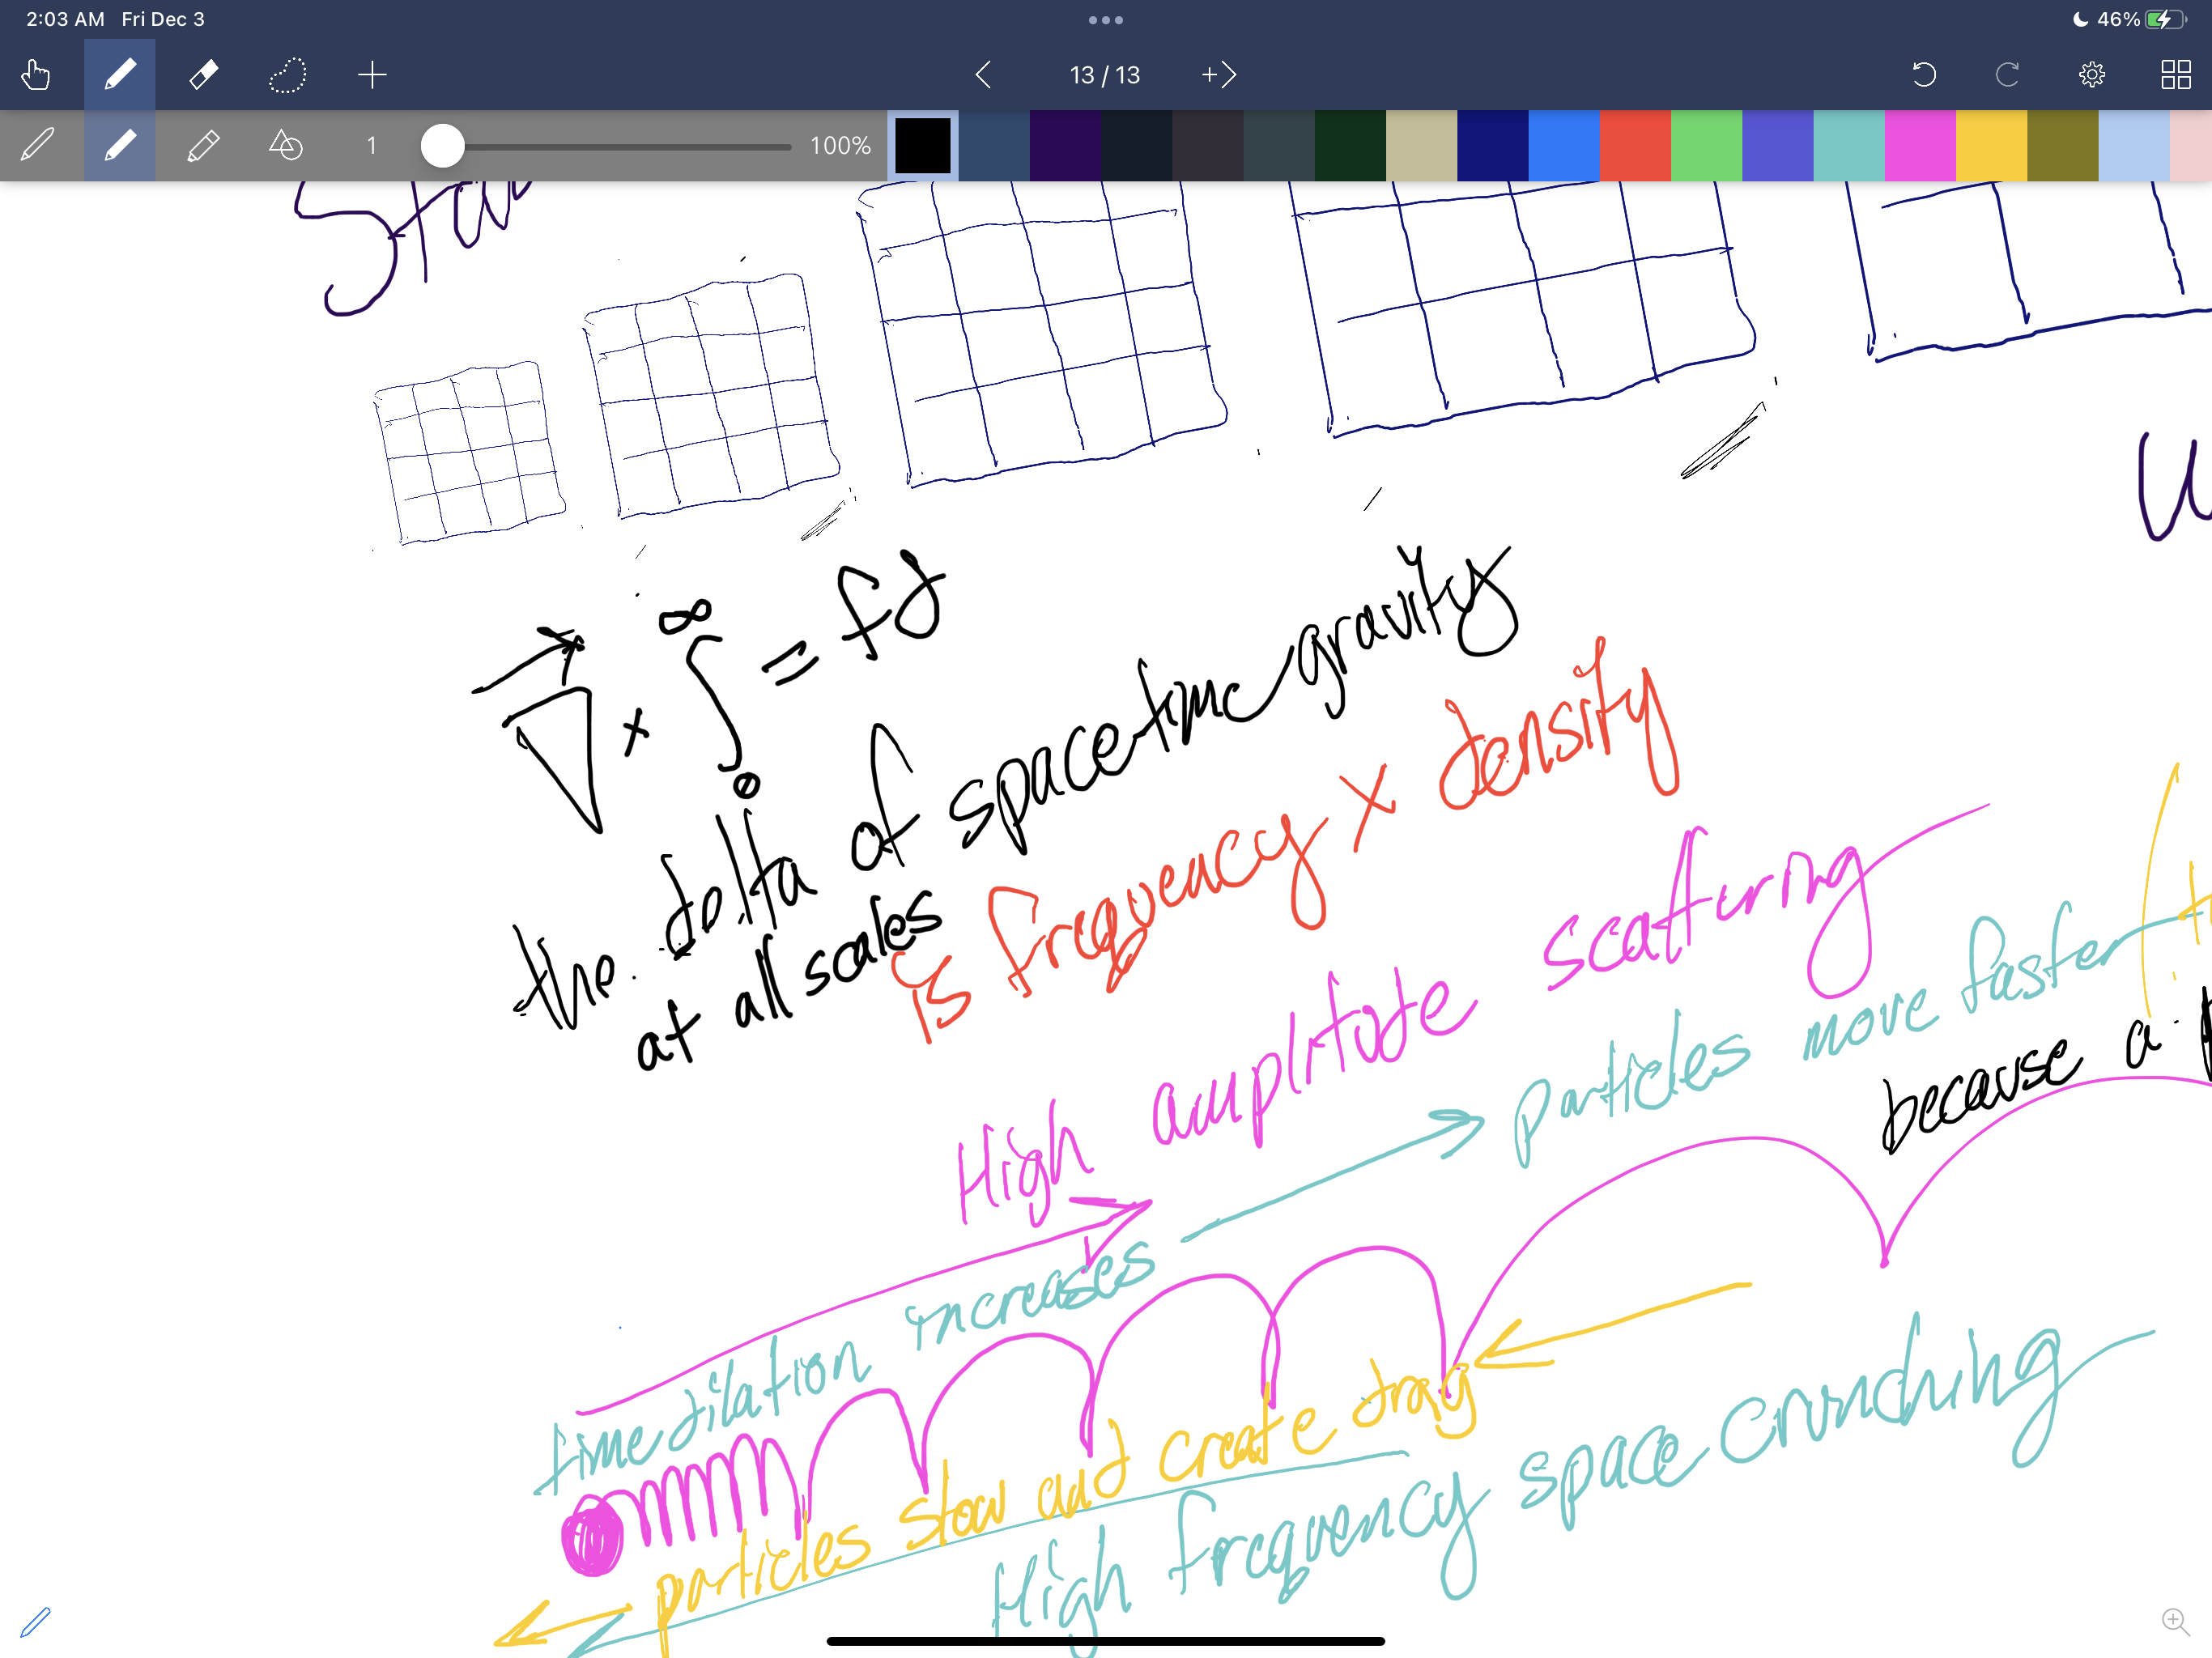 2:03 AM Fri Dec 3
46%
13 / 13
1
100%
∇ × ∫ = fd
∞
0
the delta of spacetime gravity
at all scales
is frequency x density
High amplitude scattering
particles move faster
because a
time dilation increases
particles slow and create drag
High frequency space crunching